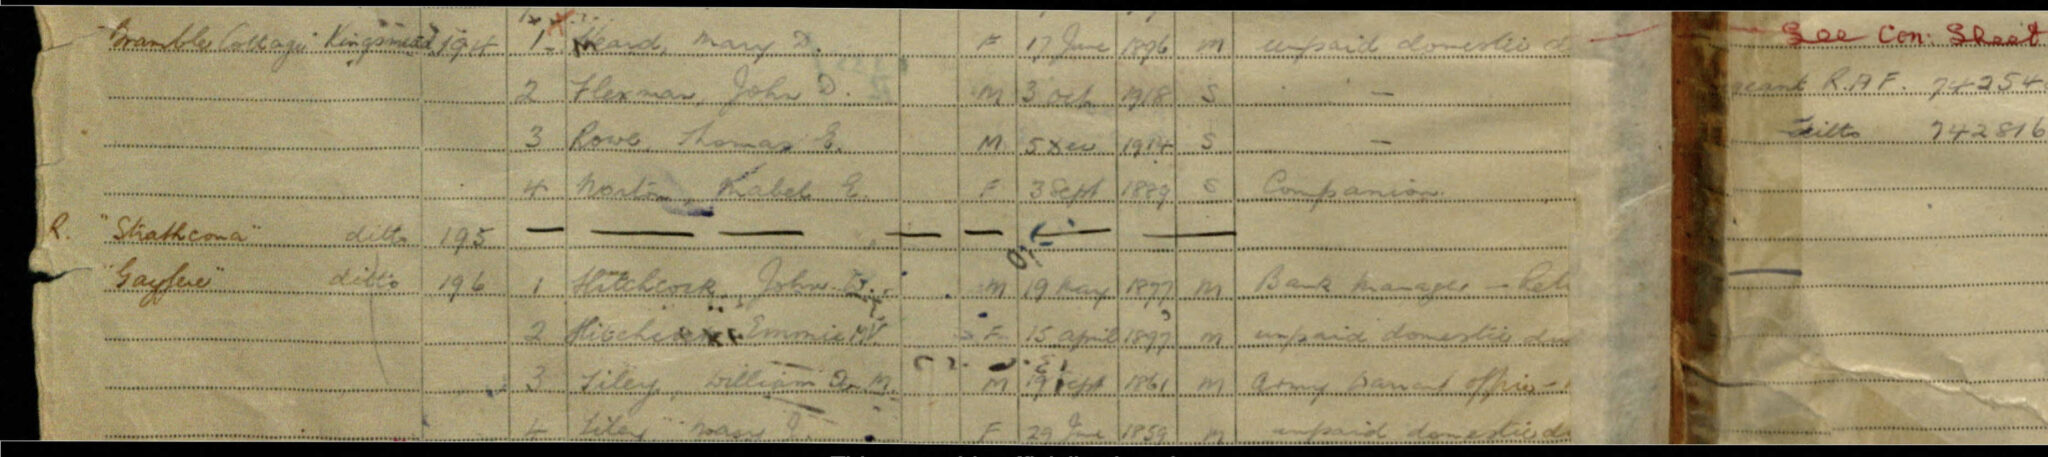 "Bramble Cottage" Kingsmead 194 1 Heard, Mary D. F 17 June 1896 M unpaid domestic d See Con: Sheet
2 Flexman, John D. M 3 Oct 1918 S — geant R.A.F. 74254
3 Rowe, Thomas E. M 5 Dec 1914 S — ditto 742816
4 Norton, Mabel E. F 3 Sept 1889 S Companion
R. "Strathcona" ditto 195 — — — — — — —
ditto 196 1 Hitchcock, John M 19 May 1897 M Bank Manager — Ret
2 Emmie M.V. F 15 April 1897 M unpaid domestic du
3 Tiley, William M. M 19 Sept 1861 M Army Warrant Officer —
4 Tiley F 29 June 1859 M unpaid domestic du